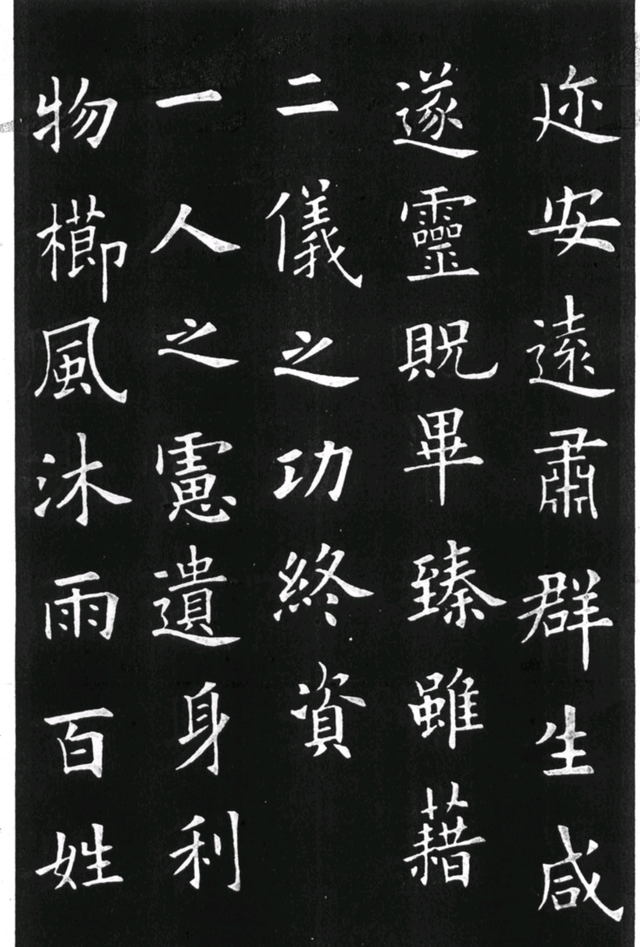 迩安遠肅群生咸
遂靈貺畢臻雖藉
二儀之功終資
一人之慮遺身利
物櫛風沐雨百姓